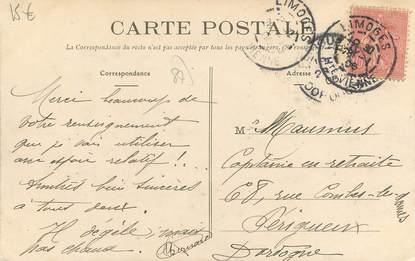 15€
CARTE POSTALE
La Correspondance du recto n'est pas acceptée par tous les pays étrangers
Correspondance
Adresse
LIMOGES
LIMOGES
Hte VIENNE
87)
Merci beaucoup de
votre renseignement
que je vais utiliser
un espoir relatif !..
Amitiés bien sincères
à tous deux.
Il dégèle ; mais
pas chaud.
M Maumus
Capitaine en retraite
68, rue Combe-des-Dames
Périgueux
Dordogne